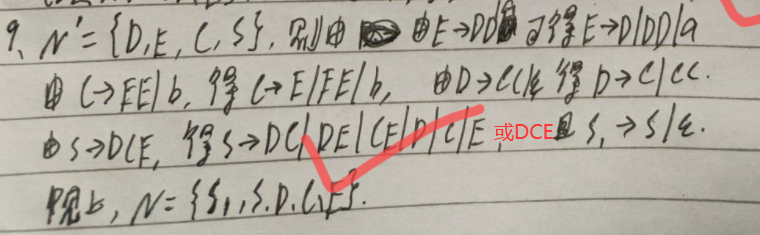 9、N'={D,E,C,S}, 则由 由E→DD 可得E→D|DD|a
由C→EE|b, 得C→E|EE|b, 由D→CC|ε 得D→C|CC.
由S→DCE, 得S→DC|DE|CE|D|C|E, 或DCE且S₁→S|ε.
综上, N={S₁,S,D,C,E}.